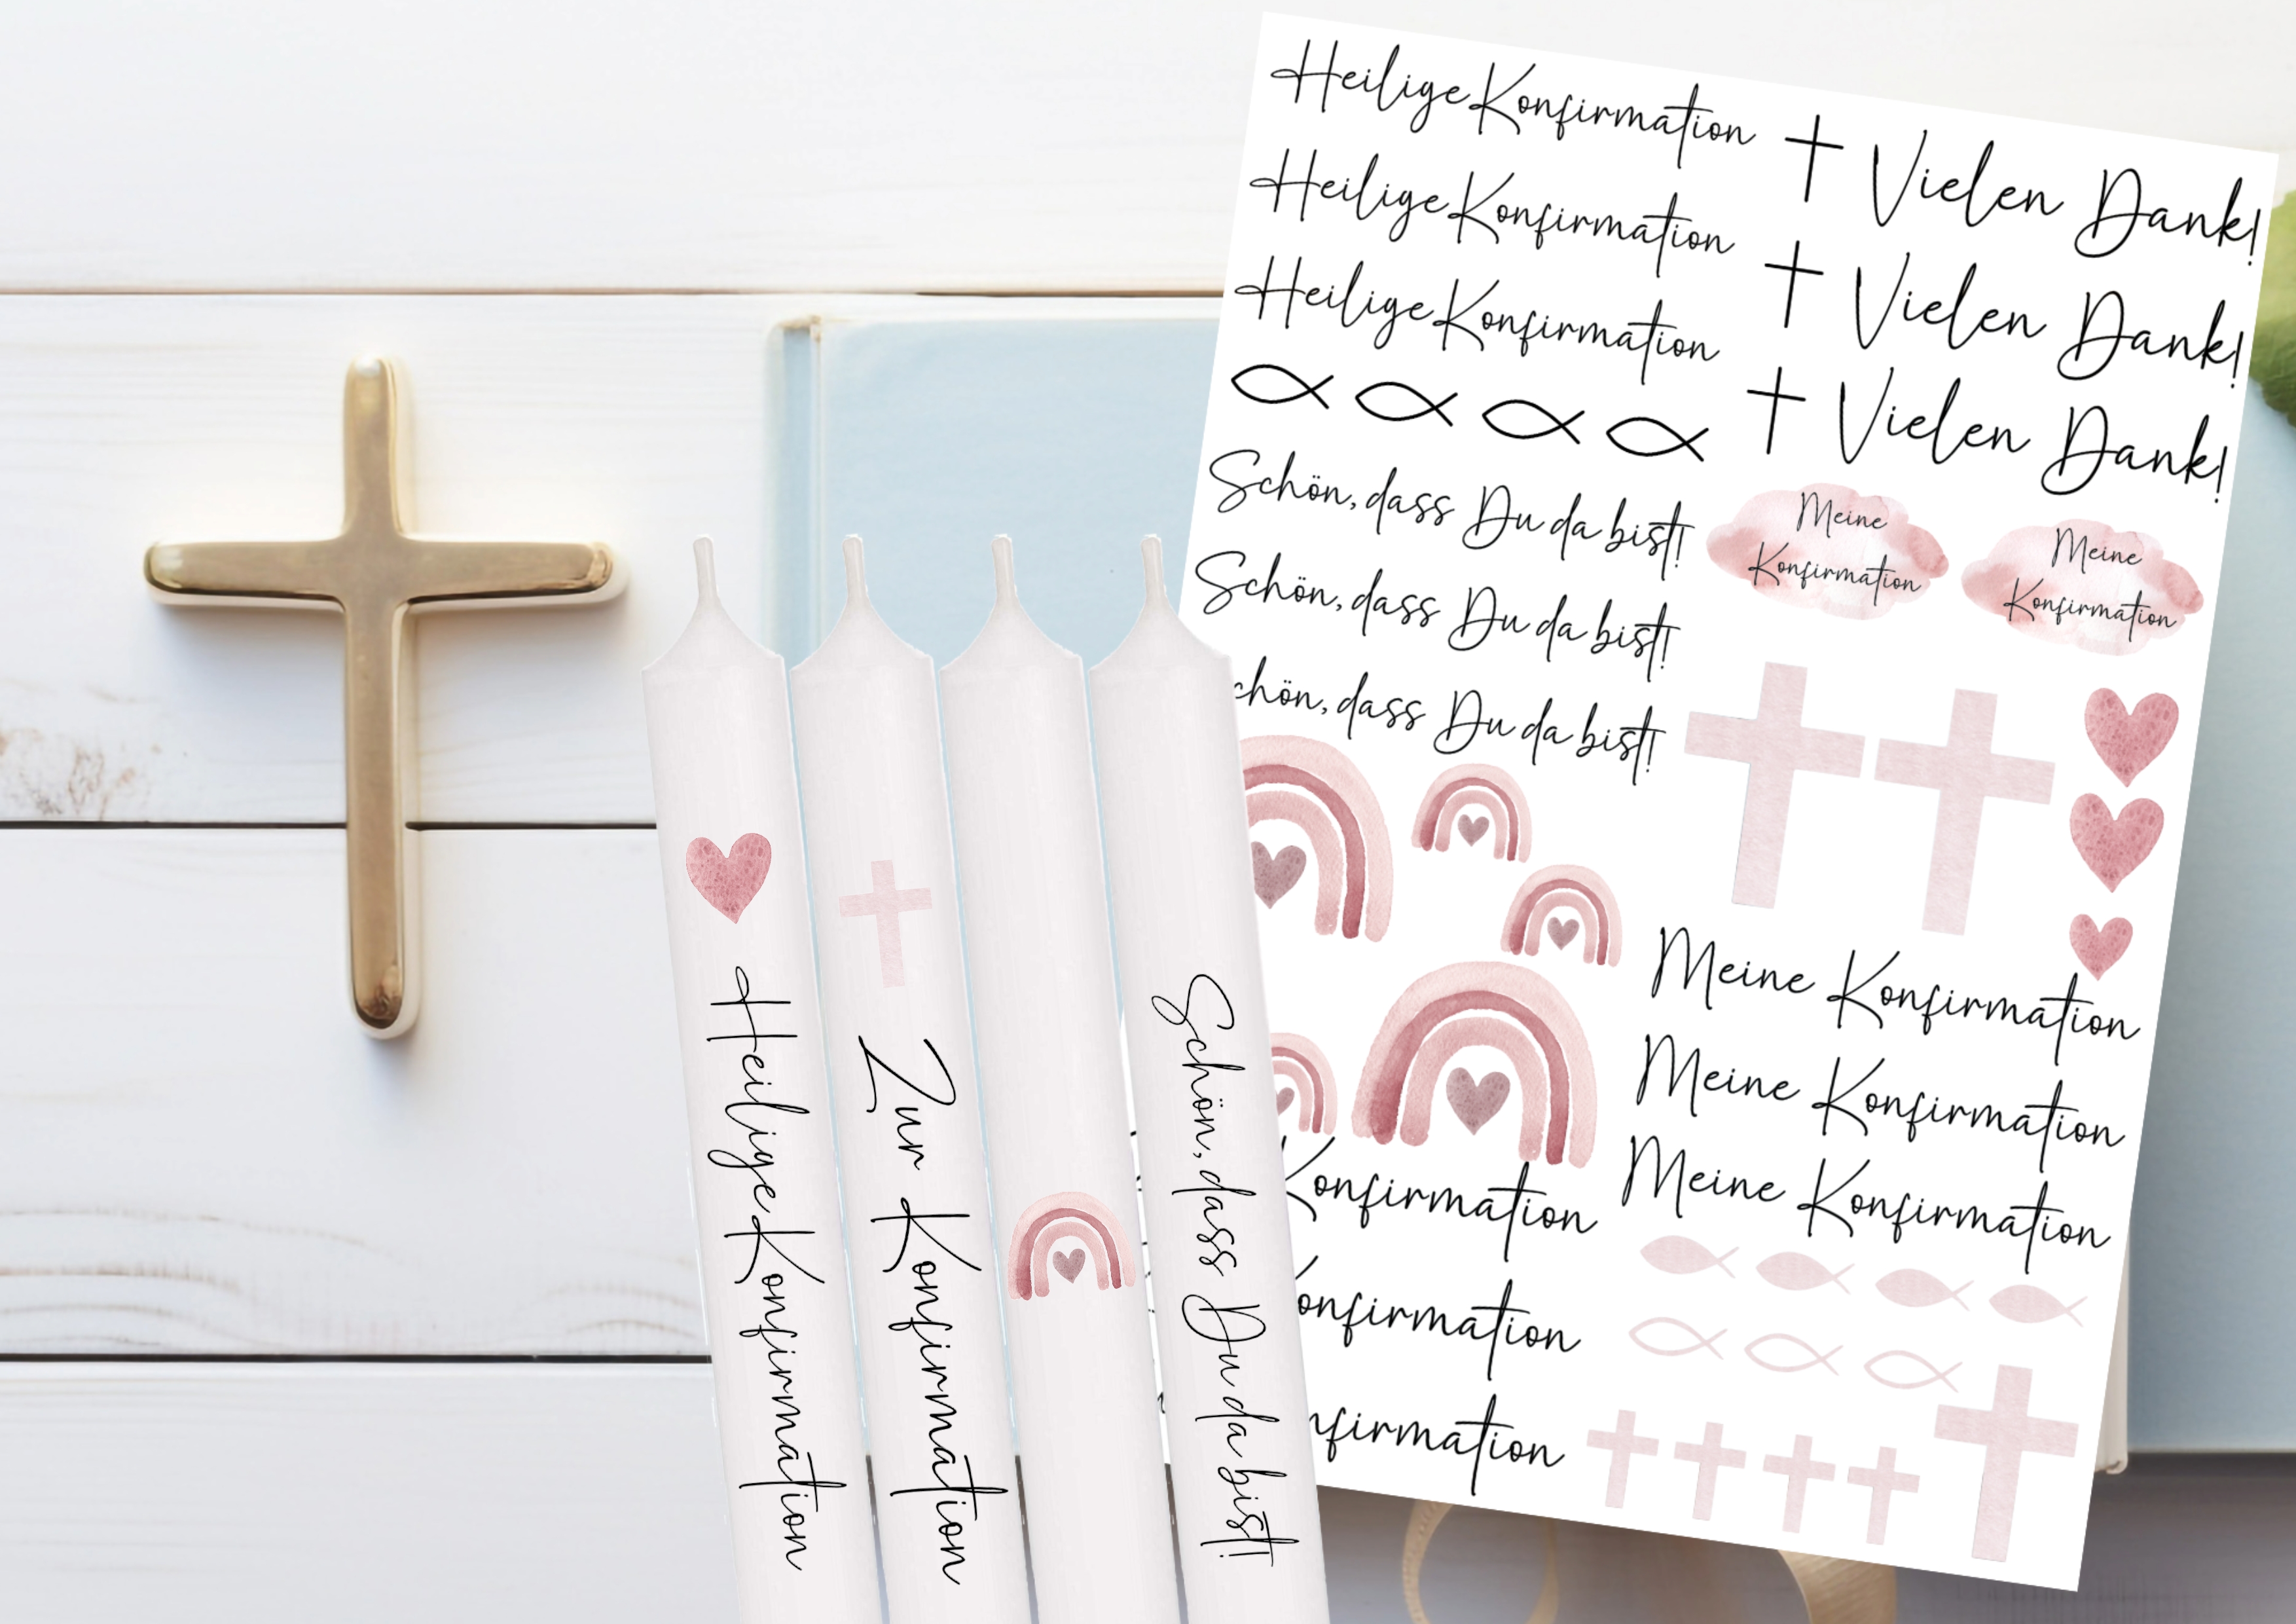 Heilige Konfirmation
Vielen Dank!
Heilige Konfirmation
Vielen Dank!
Heilige Konfirmation
Vielen Dank!
Schön, dass Du da bist!
Meine
Konfirmation
Meine
Konfirmation
Schön, dass Du da bist!
chön, dass Du da bist!
Meine Konfirmation
Meine Konfirmation
Meine Konfirmation
Konfirmation
onfirmation
nfirmation
Heilige Konfirmation
Zur Konfirmation
Schön, dass Du da bist!